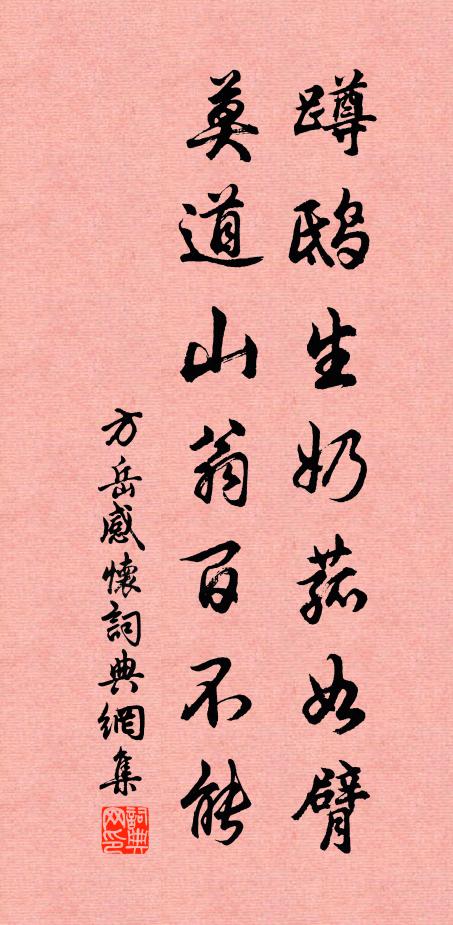 蹲鸱生奶菰如臂
莫道山翁百不能
方岳感懷詞典網集
詞典网印